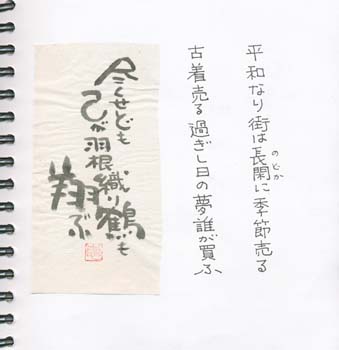 平和なり街は長閑に季節売る
のどか
古着売る過ぎし日の夢誰が買ふ
尽くせども
己が羽根織り鶴も
翔ぶ